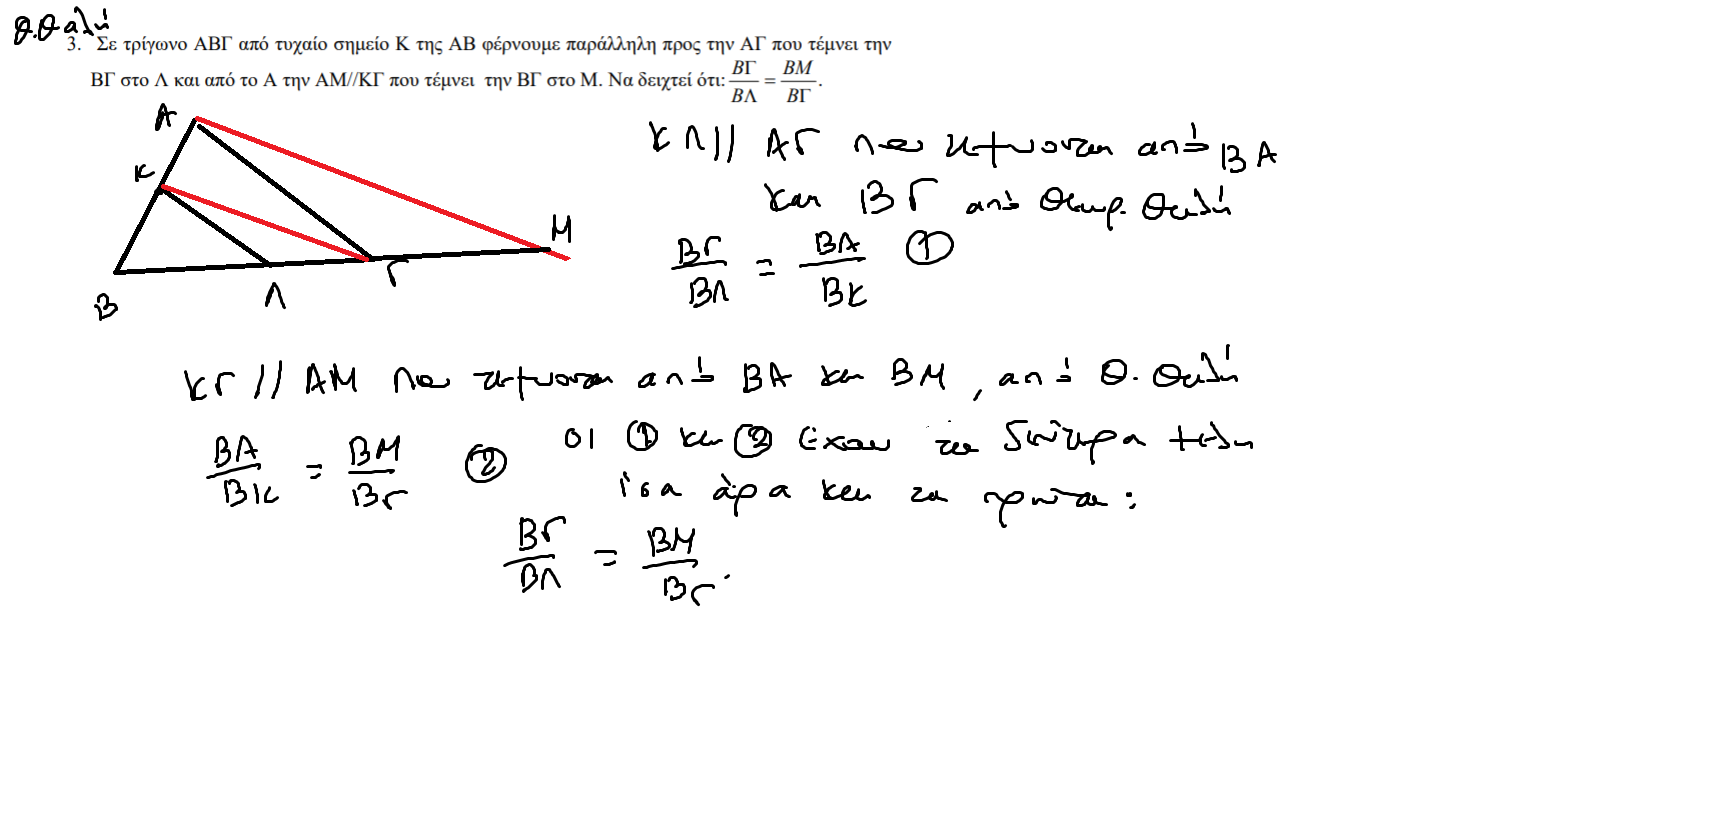 θ.Θαλή
3. Σε τρίγωνο ΑΒΓ από τυχαίο σημείο Κ της ΑΒ φέρνουμε παράλληλη προς την ΑΓ που τέμνει την
ΒΓ στο Λ και από το Α την ΑΜ//ΚΓ που τέμνει την ΒΓ στο Μ. Να δειχτεί ότι: ΒΓ/ΒΛ = ΒΜ/ΒΓ.
Α
Κ
Β
Λ
Γ
Μ
ΚΛ // ΑΓ που τέμνονται από ΒΑ
και ΒΓ από Θεωρ. Θαλή
ΒΓ/ΒΛ = ΒΑ/ΒΚ ①
ΚΓ // ΑΜ που τέμνονται από ΒΑ και ΒΜ, από Θ. Θαλή
ΒΑ/ΒΚ = ΒΜ/ΒΓ ②
οι ① και ② έχουν τα δεύτερα μέλη
ίσα άρα και τα πρώτα:
ΒΓ/ΒΛ = ΒΜ/ΒΓ.